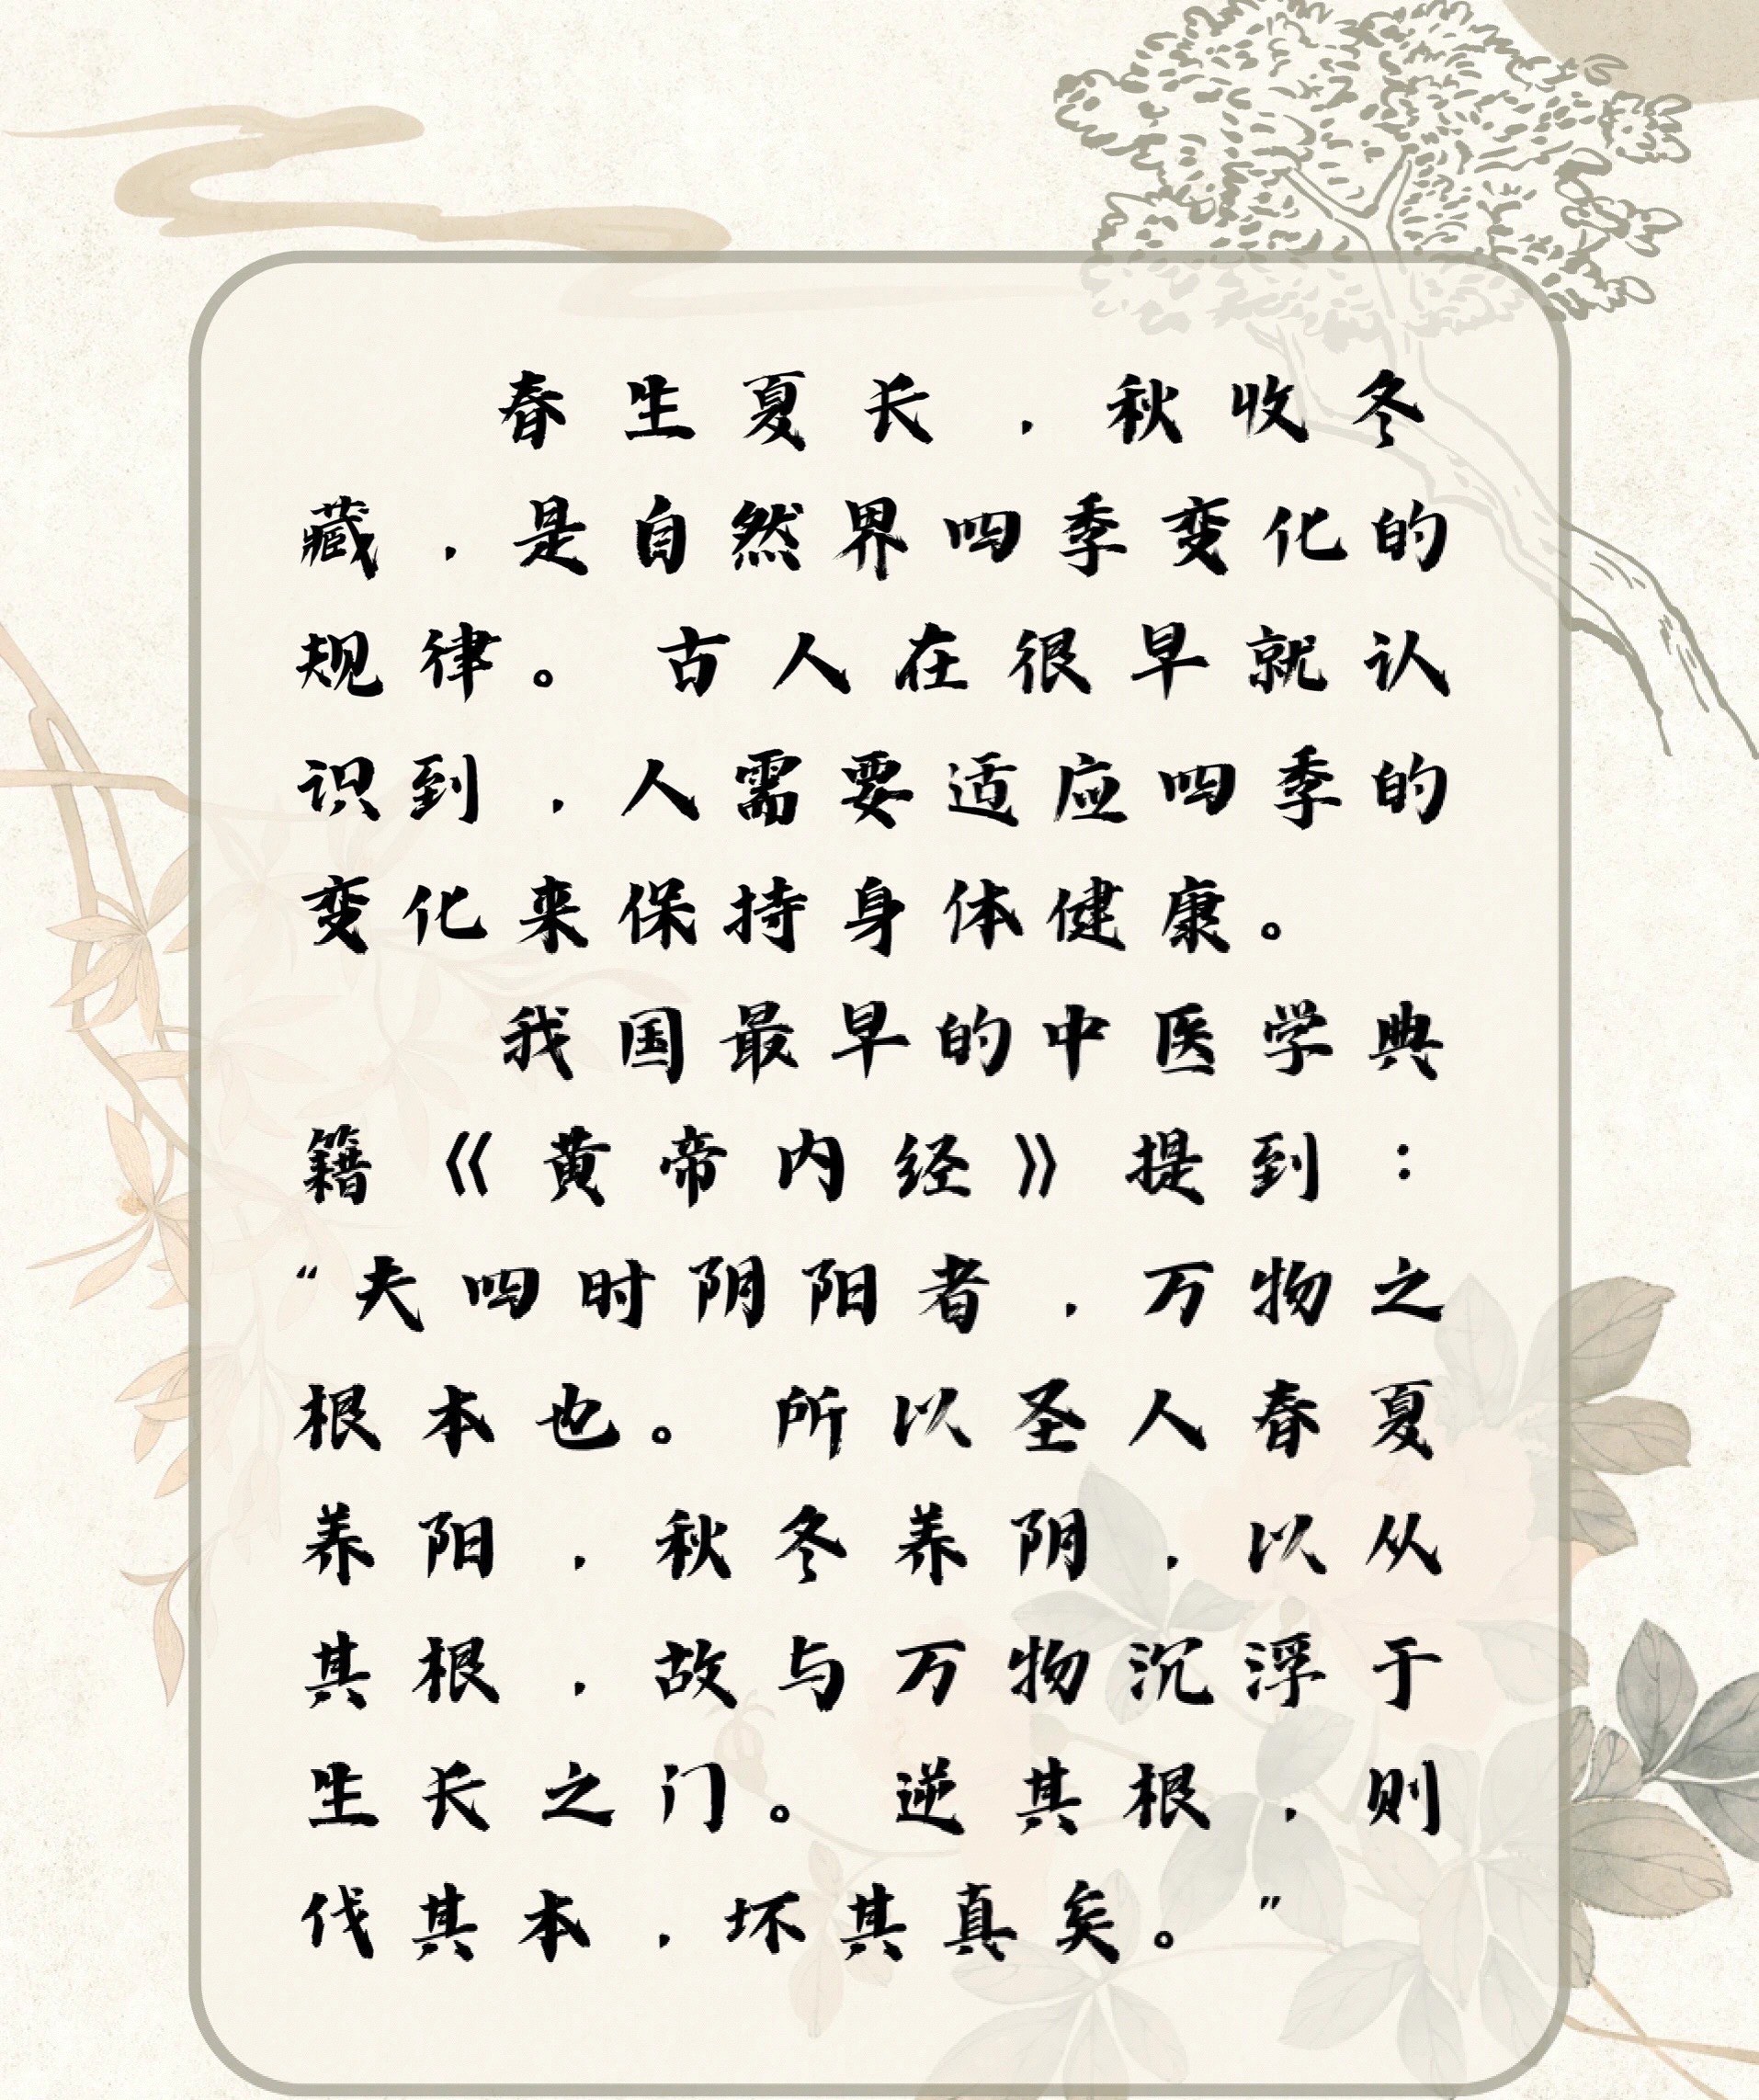 春生夏长，秋收冬
藏，是自然界四季变化的
规律。古人在很早就认
识到，人需要适应四季的
变化来保持身体健康。
我国最早的中医学典
籍《黄帝内经》提到：
“夫四时阴阳者，万物之
根本也。所以圣人春夏
养阳，秋冬养阴，以从
其根，故与万物沉浮于
生长之门。逆其根，则
伐其本，坏其真矣。”